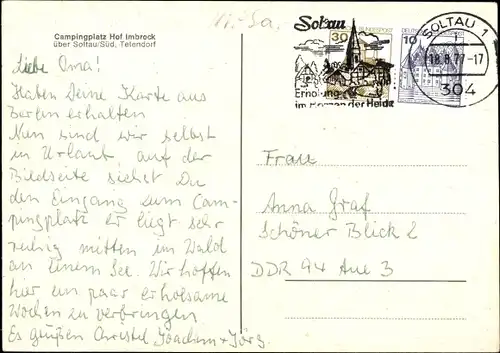 11. Sa.
Campingplatz Hof Imbrock
über Soltau/Süd, Tetendorf
Liebe Oma!
Haben Deine Karte aus
Berlin erhalten
Nun sind wir selbst
in Urlaub, auf der
Bildseite siehst Du
den Eingang zum Cam-
pingplatz er liegt sehr
ruhig mitten im Wald
an einem See. Wir hoffen
hier ein paar erholsame
Wochen zu verbringen
Es grüßen Christel Joachim + Jörg
Soltau
Erholung
im Herzen der Heide
30
10
SOLTAU 1
18.8.77-17
304
Frau
Anna Graf
Schöner Blick 2
DDR 94 Aue 3